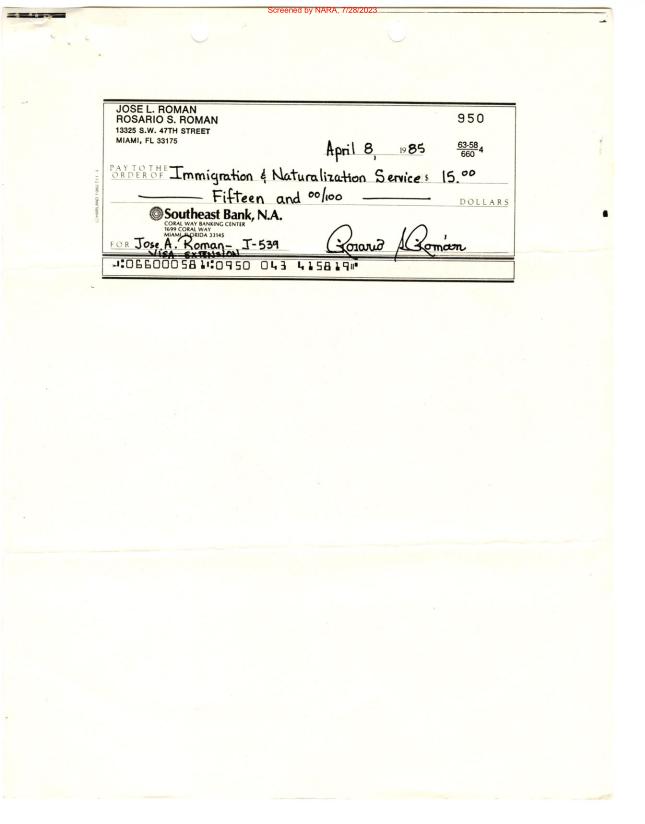 Screened by NARA, 7/28/2023
JOSE L. ROMAN
ROSARIO S. ROMAN
13325 S.W. 47TH STREET
MIAMI, FL 33175
950
April 8, 1985
63-58 4
660
PAY TO THE
ORDER OF Immigration & Naturalization Service $ 15.00
Fifteen and 00/100 DOLLARS
Southeast Bank, N.A.
CORAL WAY BANKING CENTER
1699 CORAL WAY
MIAMI, FLORIDA 33145
FOR Jose A. Roman - I-539
VISA EXTENSION
Rosario S Roman
⑆066000581⑆0950 043 415819⑈